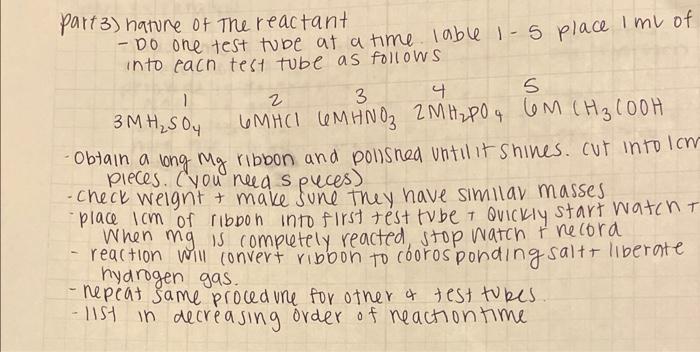 part 3) nature of The reactant
- Do one test tube at a time. lable 1-5 place 1 ml of
into each test tube as follows
1 2 3 4 5
3MH₂SO₄ 6MHCl 6MHNO₃ 2MH₂PO₄ 6M CH₃COOH
- Obtain a long Mg ribbon and polished until it shines. cut into 1cm
pieces. (you need 5 pieces)
- check weight + make sure They have similar masses
- place 1cm of ribbon into first test tube + Quickly start watch +
When mg is completely reacted, stop watch + record
- reaction will convert ribbon to coorosponding salt + liberate
hydrogen gas.
- repeat same procedure for other 4 test tubes.
- list in decreasing order of reaction time